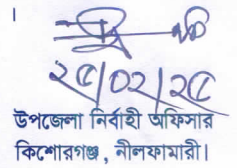 ।
২৫/০২/২৫
উপজেলা নির্বাহী অফিসার
কিশোরগঞ্জ, নীলফামারী।